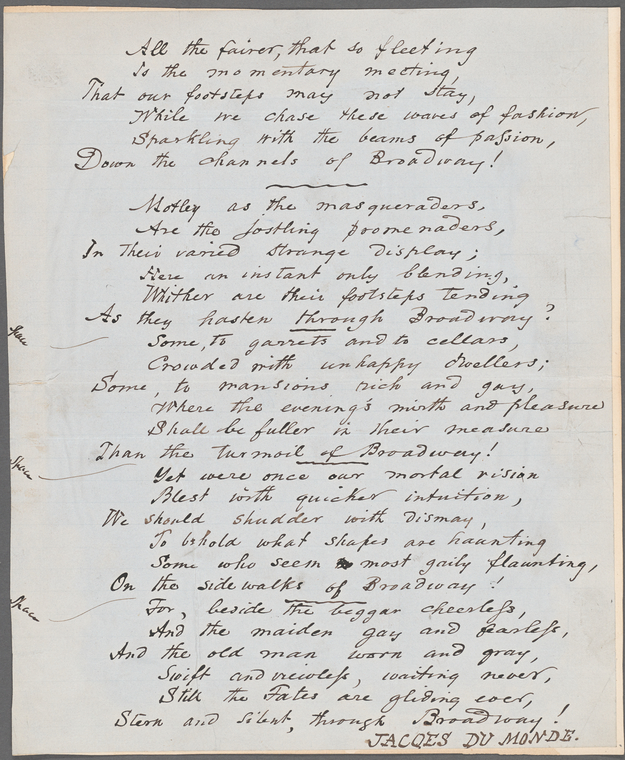 All the fairer, that so fleeting
Is the momentary meeting,
That our footsteps may not stay,
While we chase these waves of fashion,
Sparkling with the beams of passion,
Down the channels of Broadway!
Motley as the masqueraders,
Are the jostling promenaders,
In their varied strange display;
Here an instant only blending,
Whither are their footsteps tending
As they hasten through Broadway?
Space
Some, to garrets and to cellars,
Crowded with unhappy dwellers;
Some, to mansions rich and gay,
Where the evening's mirth and pleasure
Shall be fuller in their measure
Than the turmoil of Broadway!
Space
Yet were once our mortal vision
Blest with quicker intuition,
We should shudder with dismay,
To behold what shapes are haunting
Some who seem most gaily flaunting,
On the sidewalks of Broadway!
Space
For, beside the beggar cheerless,
And the maiden gay and fearless,
And the old man worn and gray,
Swift and viewless, waiting never,
Still the Fates are gliding ever,
Stern and silent, through Broadway!
JACQES DU MONDE.